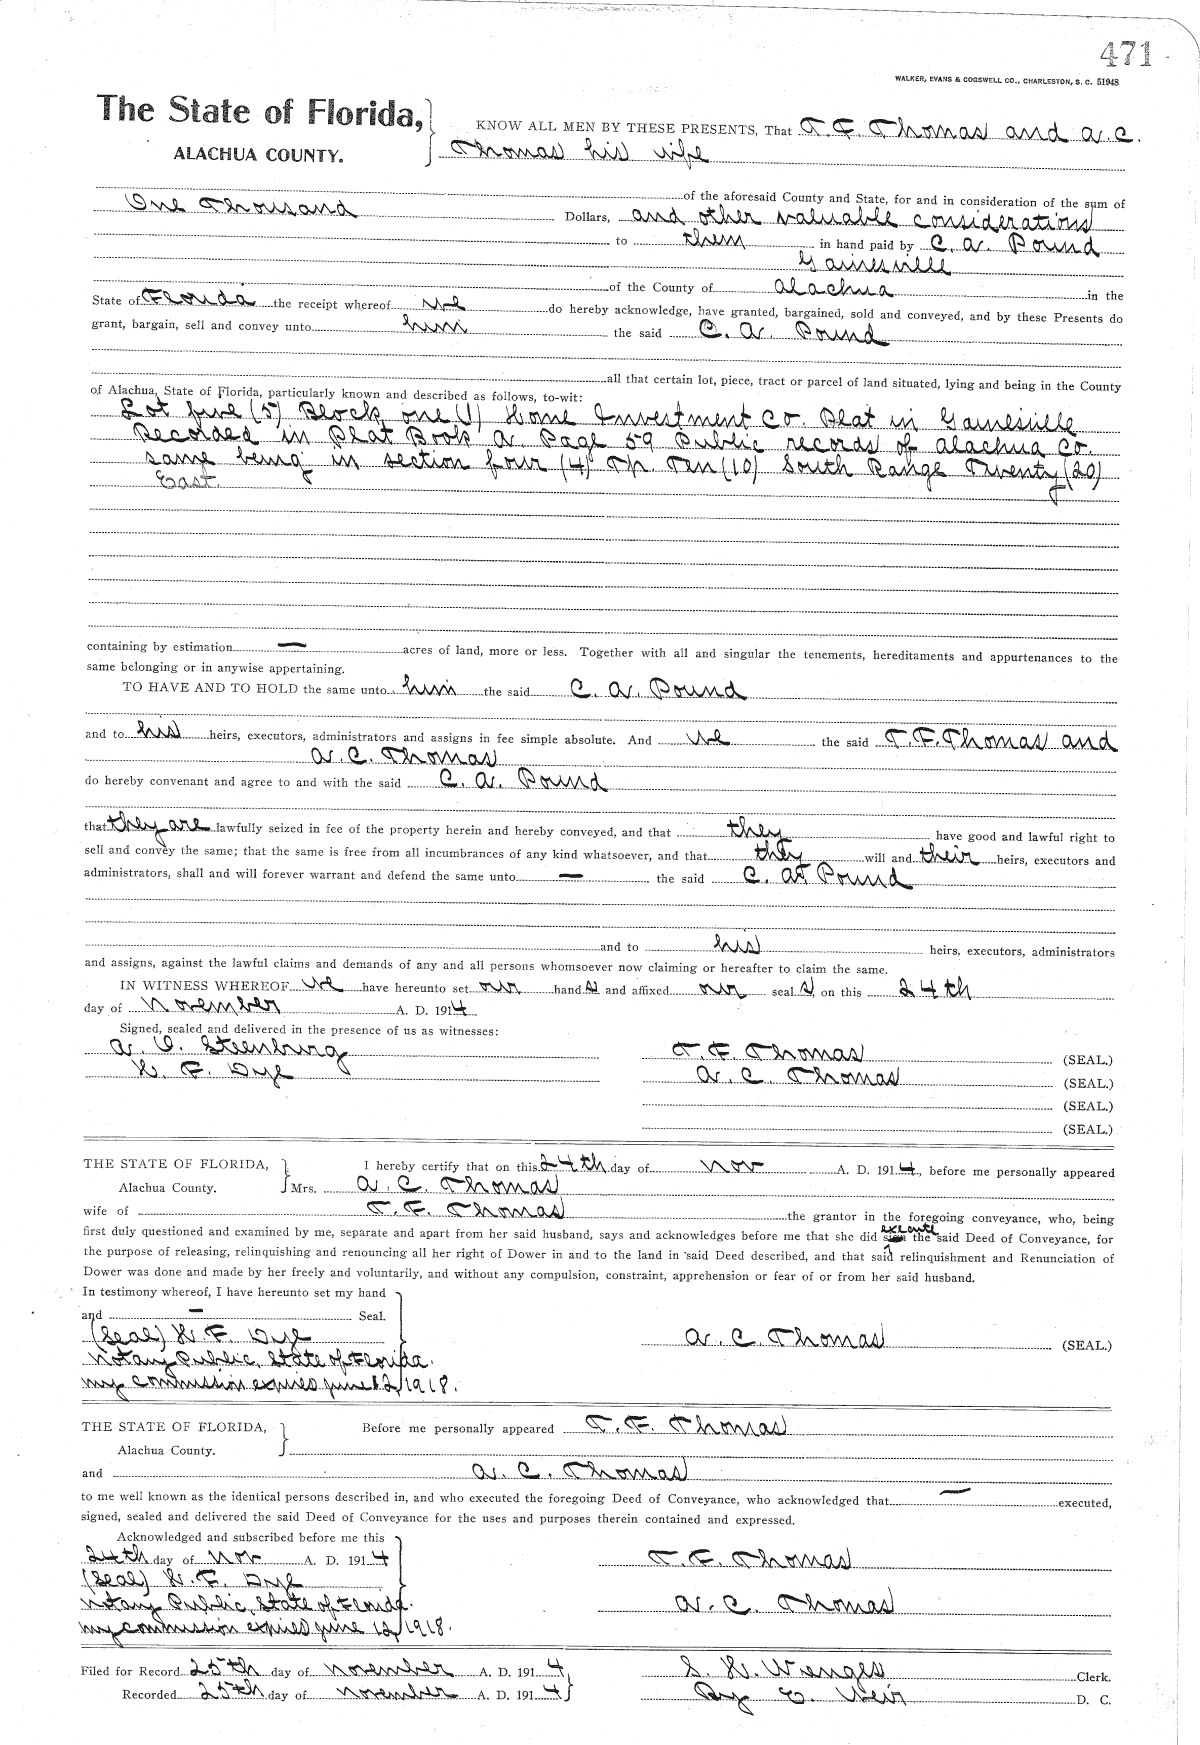 471
WALKER, EVANS & COGSWELL CO., CHARLESTON, S. C. 51948
The State of Florida, KNOW ALL MEN BY THESE PRESENTS, That T. F. Thomas and A. C.
ALACHUA COUNTY. Thomas his wife
of the aforesaid County and State, for and in consideration of the sum of
One Thousand Dollars, and other valuable considerations
to them in hand paid by C. A. Pound
Gainesville
of the County of Alachua in the
State of Florida the receipt whereof we do hereby acknowledge, have granted, bargained, sold and conveyed, and by these Presents do
grant, bargain, sell and convey unto him the said C. A. Pound
all that certain lot, piece, tract or parcel of land situated, lying and being in the County
of Alachua, State of Florida, particularly known and described as follows, to-wit:
Lot five (5) Block one (1) Home Investment Co. Plat in Gainesville
Recorded in Plat Book A. Page 59 Public records of Alachua Co.
same being in section four (4) Tp. Ten (10) South Range Twenty (20)
East.
containing by estimation — acres of land, more or less. Together with all and singular the tenements, hereditaments and appurtenances to the
same belonging or in anywise appertaining.
TO HAVE AND TO HOLD the same unto him the said C. A. Pound
and to his heirs, executors, administrators and assigns in fee simple absolute. And we the said T. F. Thomas and
A. C. Thomas
do hereby convenant and agree to and with the said C. A. Pound
that they are lawfully seized in fee of the property herein and hereby conveyed, and that they have good and lawful right to
sell and convey the same; that the same is free from all incumbrances of any kind whatsoever, and that they will and their heirs, executors and
administrators, shall and will forever warrant and defend the same unto — the said C. A. Pound
and to his heirs, executors, administrators
and assigns, against the lawful claims and demands of any and all persons whomsoever now claiming or hereafter to claim the same.
IN WITNESS WHEREOF we have hereunto set our hand s and affixed our seal s on this 24th
day of November A. D. 1914
Signed, sealed and delivered in the presence of us as witnesses:
A. O. Steenburg T. F. Thomas (SEAL.)
H. F. Dye A. C. Thomas (SEAL.)
(SEAL.)
(SEAL.)
THE STATE OF FLORIDA, I hereby certify that on this 24th day of Nov A. D. 1914, before me personally appeared
Alachua County. Mrs. A. C. Thomas
wife of T. F. Thomas the grantor in the foregoing conveyance, who, being
first duly questioned and examined by me, separate and apart from her said husband, says and acknowledges before me that she did execute the said Deed of Conveyance, for
the purpose of releasing, relinquishing and renouncing all her right of Dower in and to the land in said Deed described, and that said relinquishment and Renunciation of
Dower was done and made by her freely and voluntarily, and without any compulsion, constraint, apprehension or fear of or from her said husband.
In testimony whereof, I have hereunto set my hand
and — Seal.
(Seal) H. F. Dye A. C. Thomas (SEAL.)
Notary Public, State of Florida.
my commission expires June 12/1918.
THE STATE OF FLORIDA, Before me personally appeared T. F. Thomas
Alachua County.
and A. C. Thomas
to me well known as the identical persons described in, and who executed the foregoing Deed of Conveyance, who acknowledged that — executed,
signed, sealed and delivered the said Deed of Conveyance for the uses and purposes therein contained and expressed.
Acknowledged and subscribed before me this
24th day of Nov A. D. 1914 T. F. Thomas
(Seal) H. F. Dye
Notary Public, State of Florida. A. C. Thomas
my commission expires June 12/1918.
Filed for Record 25th day of November A. D. 1914 S. H. Wienges Clerk.
Recorded 25th day of November A. D. 1914 By E. Weir D. C.